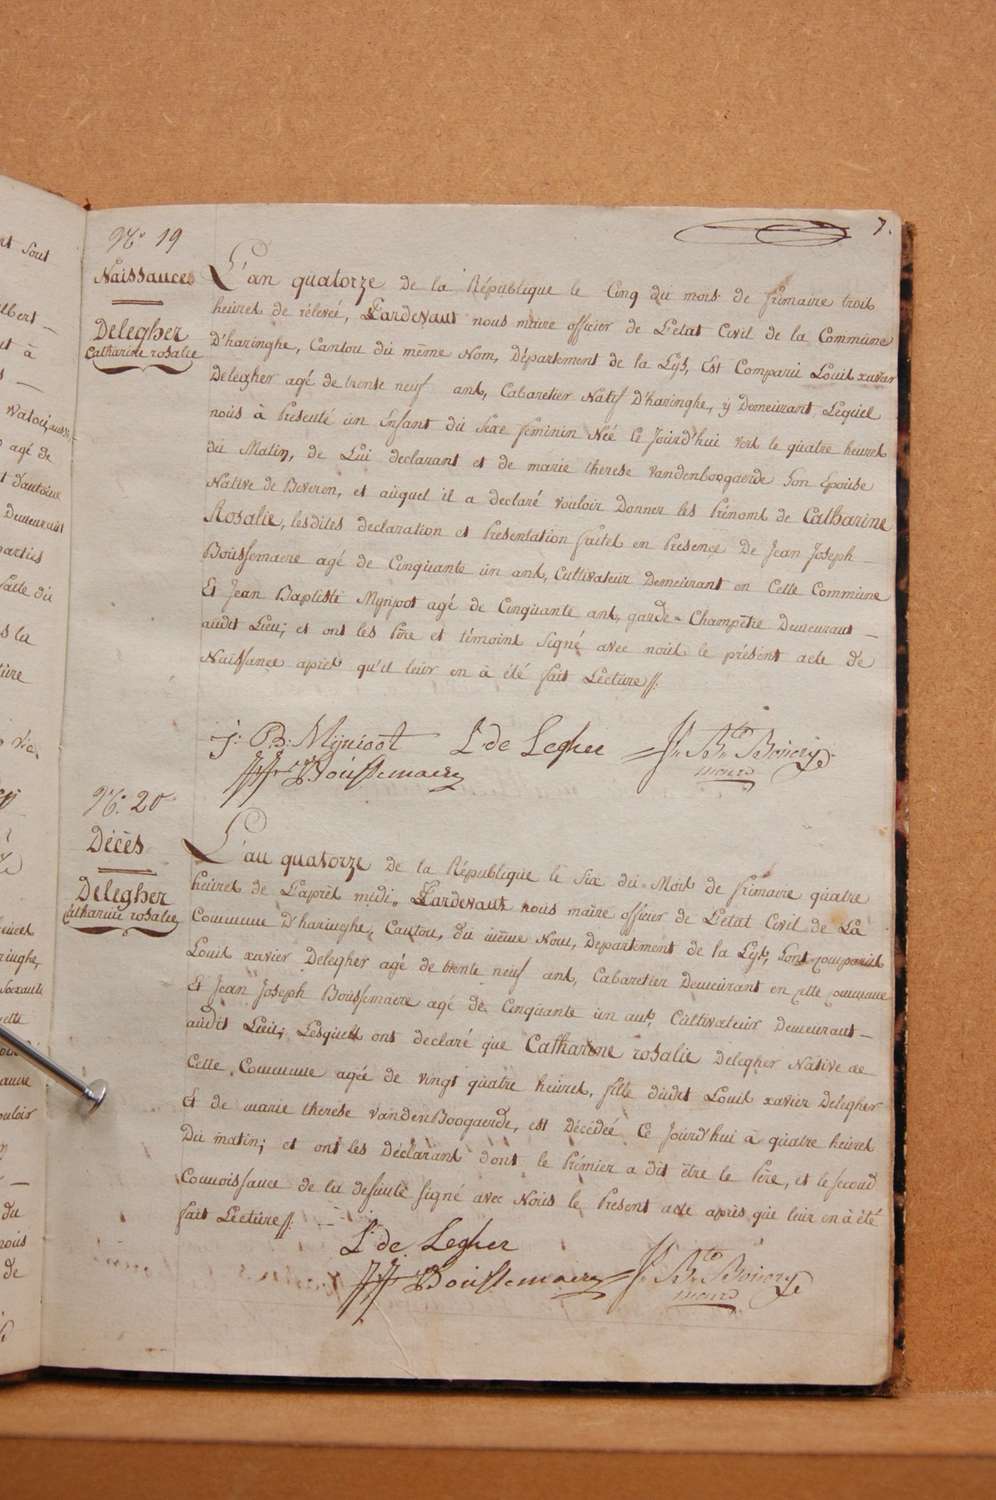 7.
N.º 19
Naissances
Delegher
Catharine rosalie
L'an quatorze de la République le Cinq du mois de frimaire trois
heures de rélévée, Pardevant nous maire officier de L'etat Civil de la Commune
D'haringhe, Canton du même Nom, Département de la Lys, Est Comparu Louis xavier
Delegher agé de trente neuf ans, Cabaretier Natif D'haringhe, y Demeurant, Lequel
nous à Presenté un Enfant du Sexe feminin Née Ce Jourd'hui vers le quatre heures
du Matin, de Lui declarant et de marie therese vandenboogaerde Son Epouse
Native de Beveren, et auquel il a declaré vouloir Donner les Prénoms de Catharine
Rosalie, lesdites declaration et Presentation faites en Presence de Jean Joseph
Boussemaere agé de Cinquante un ans, Cultivateur Demeurant en Cette Commune
Et Jean Baptiste Mynjoot agé de Cinquante ans, garde-Champêtre Demeurant
audit Lieu; et ont les Père et témoins signé avec nous le présent acte de
Naissance après qu'il leur en à été fait Lecture //.
J: B: Mynjoot L de Legher
JJ Boussemaere
maire
N.º 20
Décès
Delegher
Catharine rosalie
L'an quatorze de la République le Six du Mois de frimaire quatre
heures de L'après midi. Pardevant nous maire officier de L'etat Civil de La
Commune D'haringhe, Canton, du même Nom, Departement de la Lys, Sont comparus
Louis xavier Delegher agé de trente neuf ans, Cabaretier Demeurant en cette commune
Et Jean Joseph Boussemaere agé de Cinquante un ans, Cultivateur Demeurant
audit Lieu; Lesquels ont declaré que Catharine rosalie Delegher Native de
Cette Commune agée de vingt quatre heures, fille dudit Louis xavier Delegher
Et de marie therese vandenBoogaerde, est Décédée Ce Jourd'hui à quatre heures
Du matin; et ont les Déclarans dont le Prémier a dit être le Père, et le second
Connoissance de la defunte signé avec Nous le Present acte après que leur en à été
fait Lecture //.
L de Legher
JJ Boussemaere
maire